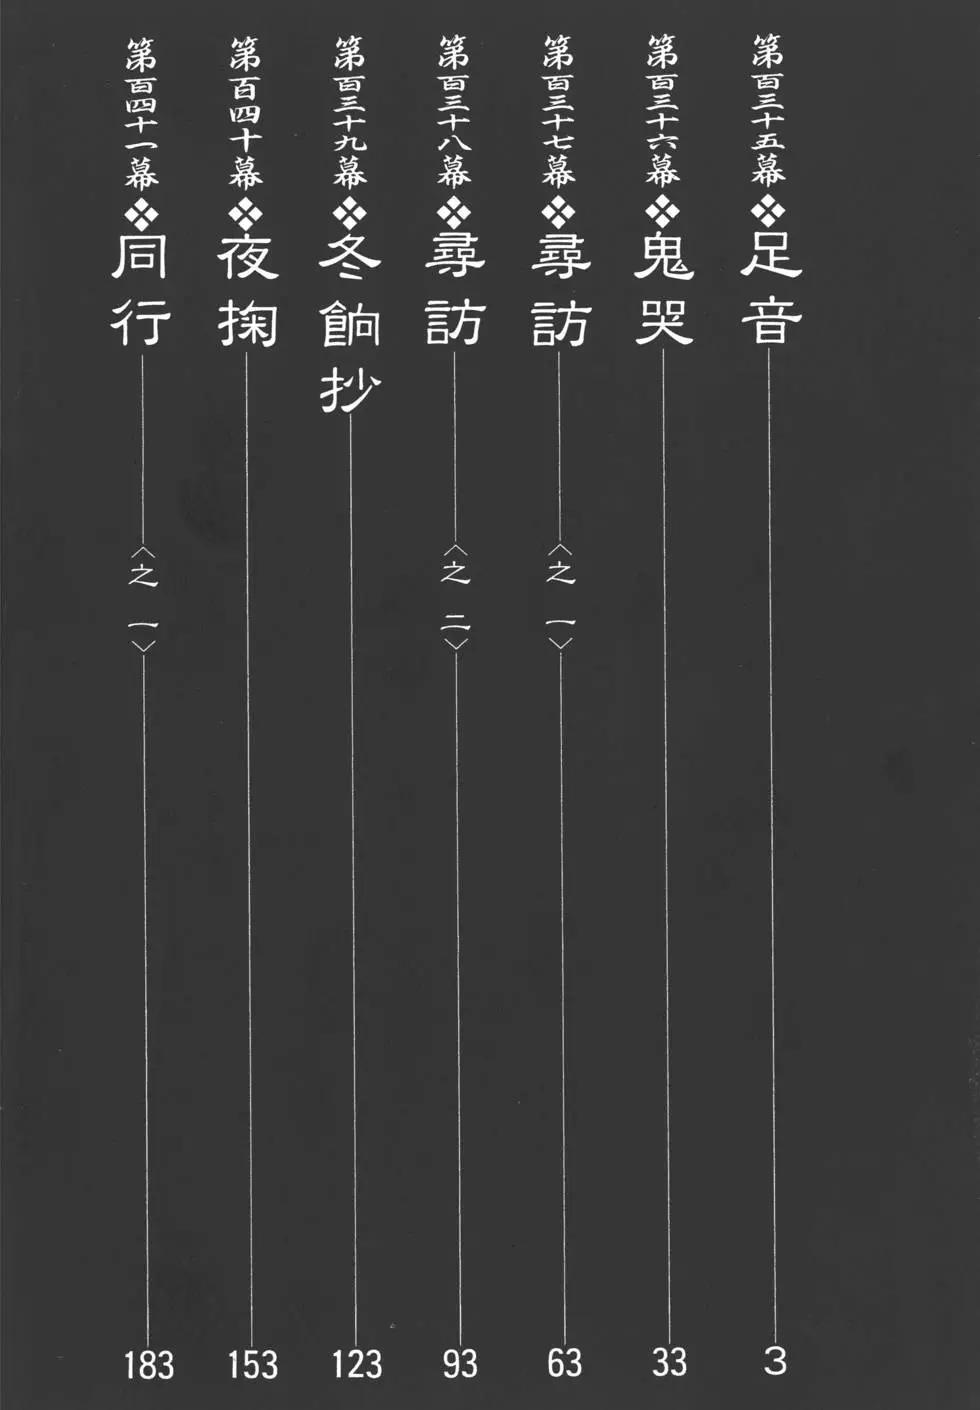 第百三十五幕❖足音 3
第百三十六幕❖鬼哭 33
第百三十七幕❖尋訪〈之一〉 63
第百三十八幕❖尋訪〈之二〉 93
第百三十九幕❖冬餉抄 123
第百四十幕❖夜掬 153
第百四十一幕❖同行〈之一〉 183